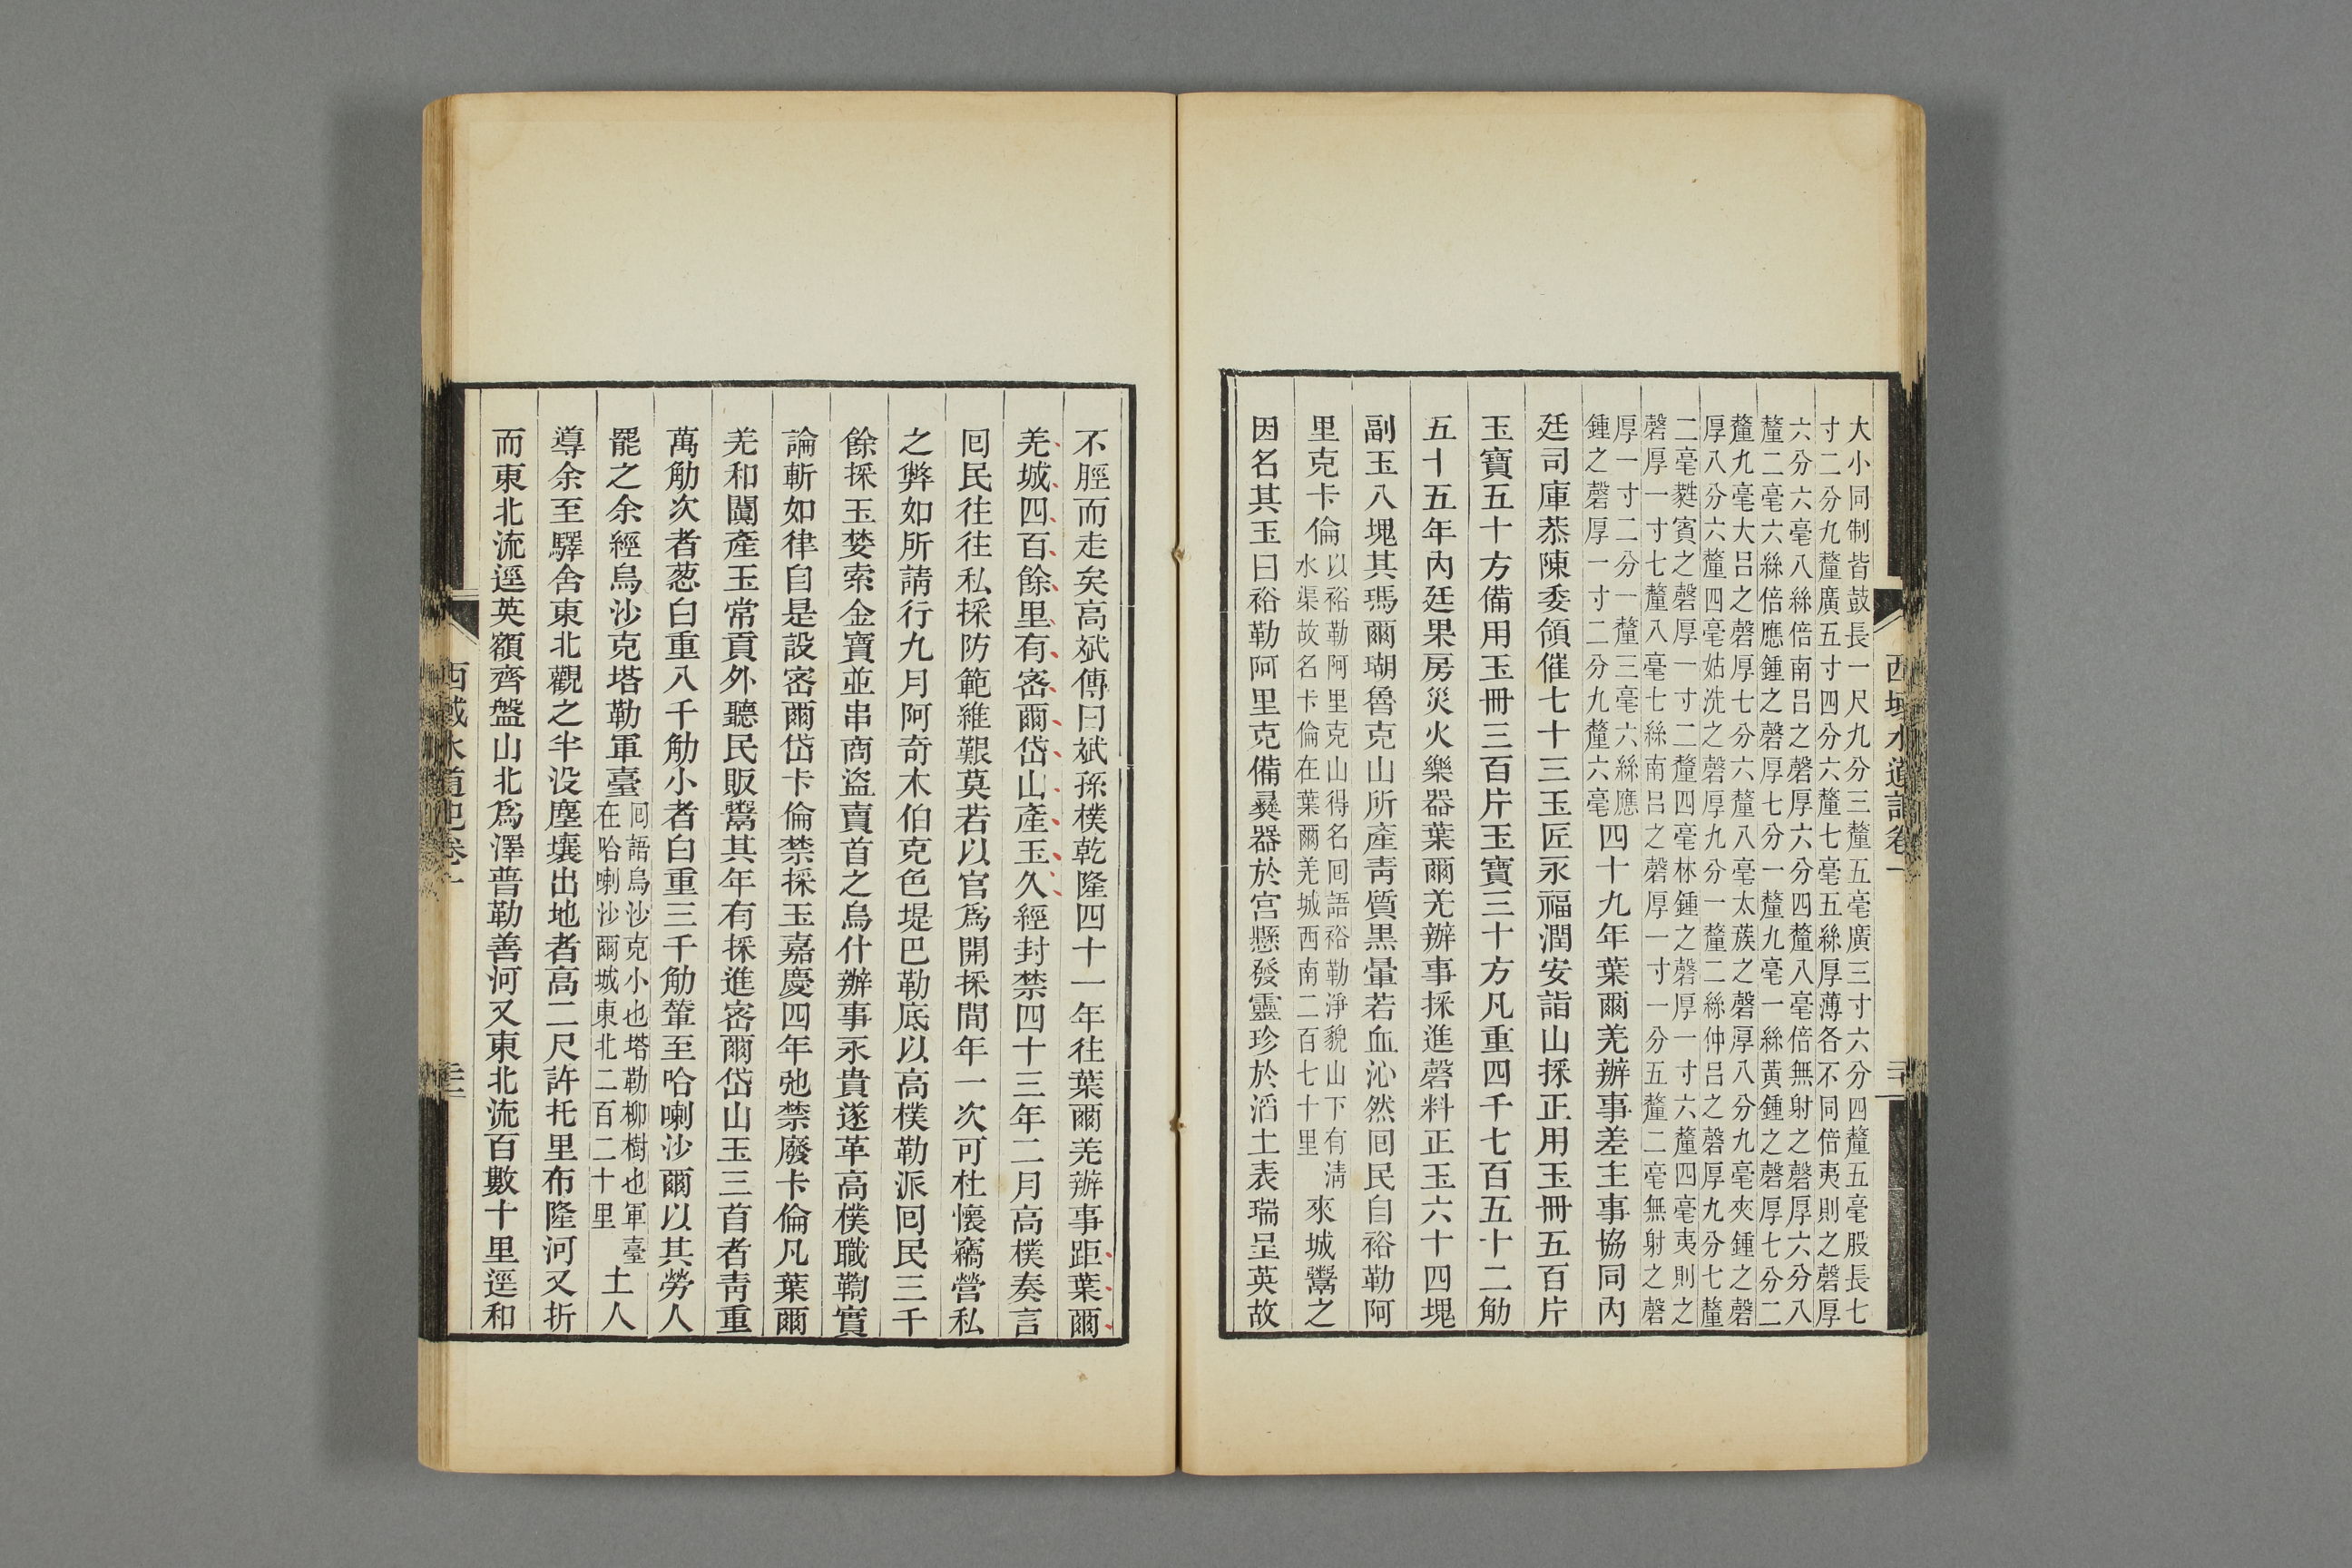 大小同制皆鼓長一尺九分三釐五毫廣三寸六分四釐五毫股長七
寸二分九釐廣五寸四分六釐七毫五絲厚薄各不同倍夷則之磬厚
六分六毫八絲倍南呂之磬厚六分四釐八毫倍無射之磬厚六分八
釐二毫六絲倍應鍾之磬厚七分一釐九毫一絲黃鍾之磬厚七分二
釐九毫大呂之磬厚七分六釐八毫太蔟之磬厚八分九毫夾鍾之磬
厚八分六釐四毫姑洗之磬厚九分一釐二絲仲呂之磬厚九分七釐
二毫蕤賓之磬厚一寸二釐四毫林鍾之磬厚一寸六釐四毫夷則之
磬厚一寸七釐八毫七絲南呂之磬厚一寸一分五釐二毫無射之磬
厚一寸二分一釐三毫六絲應
鍾之磬厚一寸二分九釐六毫
四十九年葉爾羌辦事差主事協同內
廷司庫恭陳委領催七十三玉匠永福潤安詣山採正用玉冊五百片
玉寶五十方備用玉冊三百片玉寶三十方凡重四千七百五十二觔
五十五年內廷果房災火樂器葉爾羌辦事採進磬料正玉六十四塊
副玉八塊其瑪爾瑚魯克山所產靑質黒暈若血沁然囘民自裕勒阿
里克卡倫
以裕勒阿里克山得名囘語裕勒淨貌山下有淸
水渠故名卡倫在葉爾羌城西南二百七十里
來城鬻之
因名其玉曰裕勒阿里克備彝器於宮懸發靈珍於滔土表瑞呈英故
西域水道記卷一
不脛而走矣高斌傳曰斌孫樸乾隆四十一年往葉爾羌辦事距葉爾
羌城四百餘里有密爾岱山產玉久經封禁四十三年二月高樸奏言
囘民往往私採防範維艱莫若以官爲開採間年一次可杜懷竊營私
之弊如所請行九月阿奇木伯克色堤巴勒底以高樸勒派囘民三千
餘採玉婪索金寶並串商盜賣首之烏什辦事永貴遂革高樸職鞫實
論斬如律自是設密爾岱卡倫禁採玉嘉慶四年弛禁廢卡倫凡葉爾
羌和闐產玉常貢外聽民販鬻其年有採進密爾岱山玉三首者靑重
萬觔次者蔥白重八千觔小者白重三千觔輦至哈喇沙爾以其勞人
罷之余經烏沙克塔勒軍臺
囘語烏沙克小也塔勒柳樹也軍臺
在哈喇沙爾城東北二百二十里
土人
導余至驛舍東北觀之半没塵壤出地者高二尺許托里布隆河又折
而東北流逕英額齊盤山北爲澤普勒善河又東北流百數十里逕和
西域水道記卷一